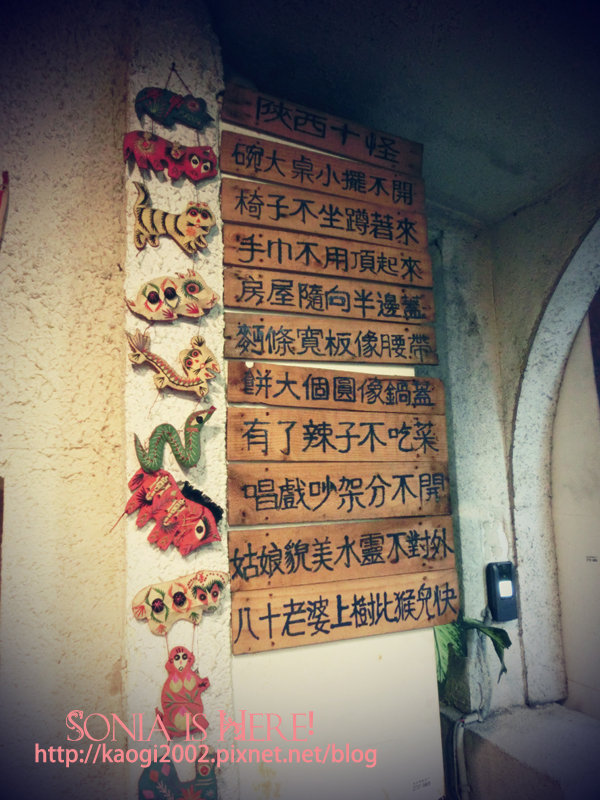 陝西十怪
碗大桌小擺不開
椅子不坐蹲著來
手巾不用頂起來
房屋隨向半邊蓋
麵條寬板像腰帶
餅大個圓像鍋蓋
有了辣子不吃菜
唱戲吵架分不開
姑娘貌美水靈不對外
八十老婆上樹比猴兒快
SONIA IS HERE!
http://kaogi2002.pixnet.net/blog